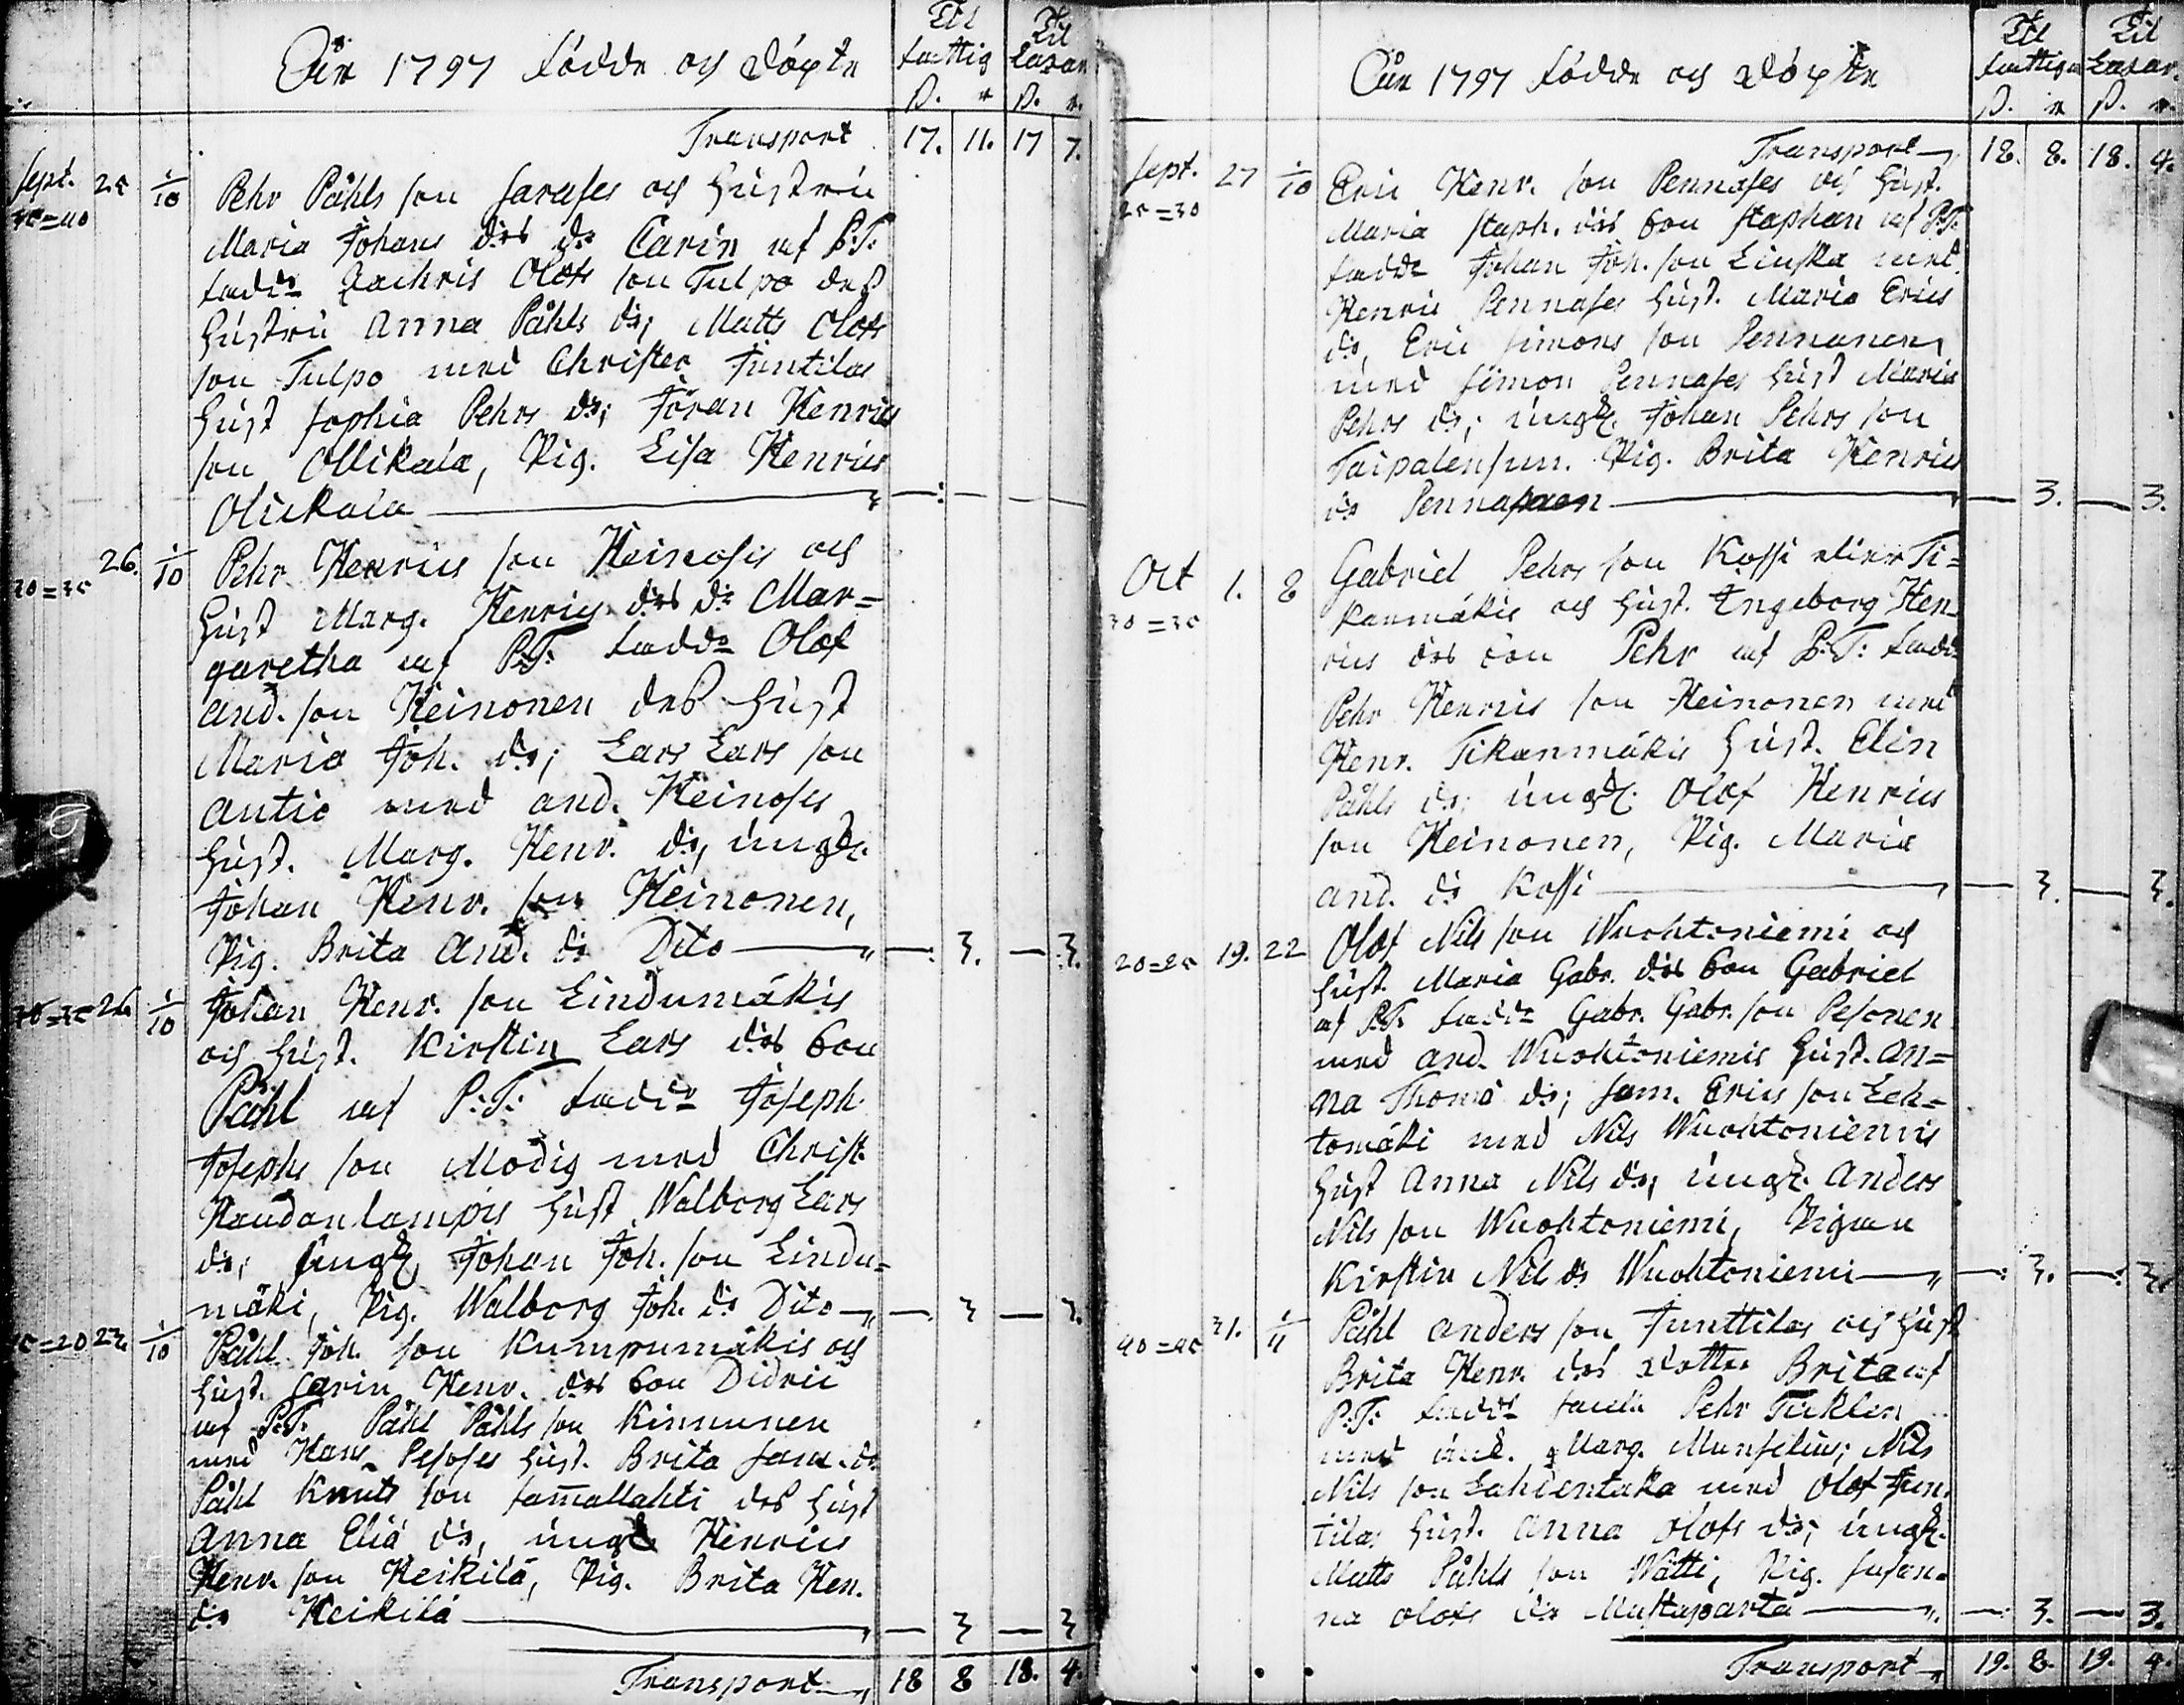 Åhr 1797 födde och döpte
Til fattig
Til Lazar.
Transport 17. 11. 17 7.
Sept. 25 1/10 Pehr Påhls son Sarases och hustru
35=40 Maria Johans drs dr Carin af P.T.
fadd. Zachris Olofs son Tulpo dess
hustru Anna Påhls dr; Matts Olofs
son Tulpo med Christer Juntilas
hust Sophia Pehrs dr; Jöran Henrics
son Ollikala, Pig. Lisa Henrics
Ollikala
26. 1/10 Pehr Henrics son Heinoses och
30=35 hust Marg. Henrics drs dr Mar=
garetha af P.T. fadd. Olof
And. son Heinonen dess hust
Maria Joh. dr; Lars Lars son
Antio med And. Heinoses
hust. Marg. Henr. dr, ungk.
Johan Henr. son Heinonen,
Pig. Brita And. dr Dito 3. 3.
30=35 26. 1/10 Johan Henr. son Lindumäkis
och hust. Kirstin Lars drs son
Påhl af P.T. fadd. Joseph
Josephs son Modig med Christ.
Haudanlampis hust Walborg Lars
dr, Ungk. Johan Joh. son Lindu=
mäki, Pig. Walborg Joh. dr Dito 3 3.
15=20 27. 1/10 Påhl Joh. son Kumpumäkis och
hust. Carin Henr. drs son Didric
af P.T. Påhl Påhls son Kinnunen
med Hans Pesoses hust. Brita Sam. dr
Påhl Knuts son Sammallahti dess hust
Anna Eliä dr, ungk. Henrics
Henr. son Heikilä, Pig. Brita Hen.
dr Heikilä 3 3
Transport 18 8 18. 4.
Åhr 1797 födde och döpte
Til fattiga
Til Lazar.
Transport 18. 8. 18. 4.
Sept. 27 1/10 Eric Henr. son Pennases och hust.
25=30 Maria Staph. drs son Staphan af P.T.
fadd. Johan Joh. son Linska med
Henric Pennases hust. Maria Erics
dr, Eric Simons son Pennanen
med Simon Pennases hust Maria
Pehrs dr; ungk. Johan Pehrs son
Taipalensuu. Pig. Brita Henrics
dr Pennanen 3. 3.
Oct 1. 8 Gabriel Pehrs son Kossi eller Ti=
30=35 kanmäkis och hust. Ingeborg Hen=
rics drs son Pehr af P.T. fadd.
Pehr Henrics son Heinonen med
Henr. Tikanmäkis hust. Elin
Påhls dr; ungk. Olof Henrics
son Heinonen, Pig. Maria
And. dr Kossi 3. 3.
20=25 19. 22 Olof Nils son Wuohtoniemi och
hust. Maria Gabr. drs son Gabriel
af P.T. fadd. Gabr. Gabr. son Pesonen
med And. Wuohtoniemis hust. An=
na Thoma dr; Sam. Erics son Leh=
tomäki med Nils Wuohtoniemis
hust Anna Nils dr, ungk. Anders
Nils son Wuohtoniemi, Pigan
Kirstin Nils dr Wuohtoniemi 3. 3.
40=45 31. 1/11 Påhl Anders son Junttilas och hust
Brita Henr. drs dotter Brita af
P.T. fadd. Pehr Ticklen
med Marg. Munselius; Nils
Nils son Lahdentaka med Olof Jun
tilas hust. Anna Olofs dr; ungk.
Matts Påhls son Wätti, Pig. Susan=
na Olofs dr Mustaparta 3. 3.
Transport 19. 8. 19. 4.